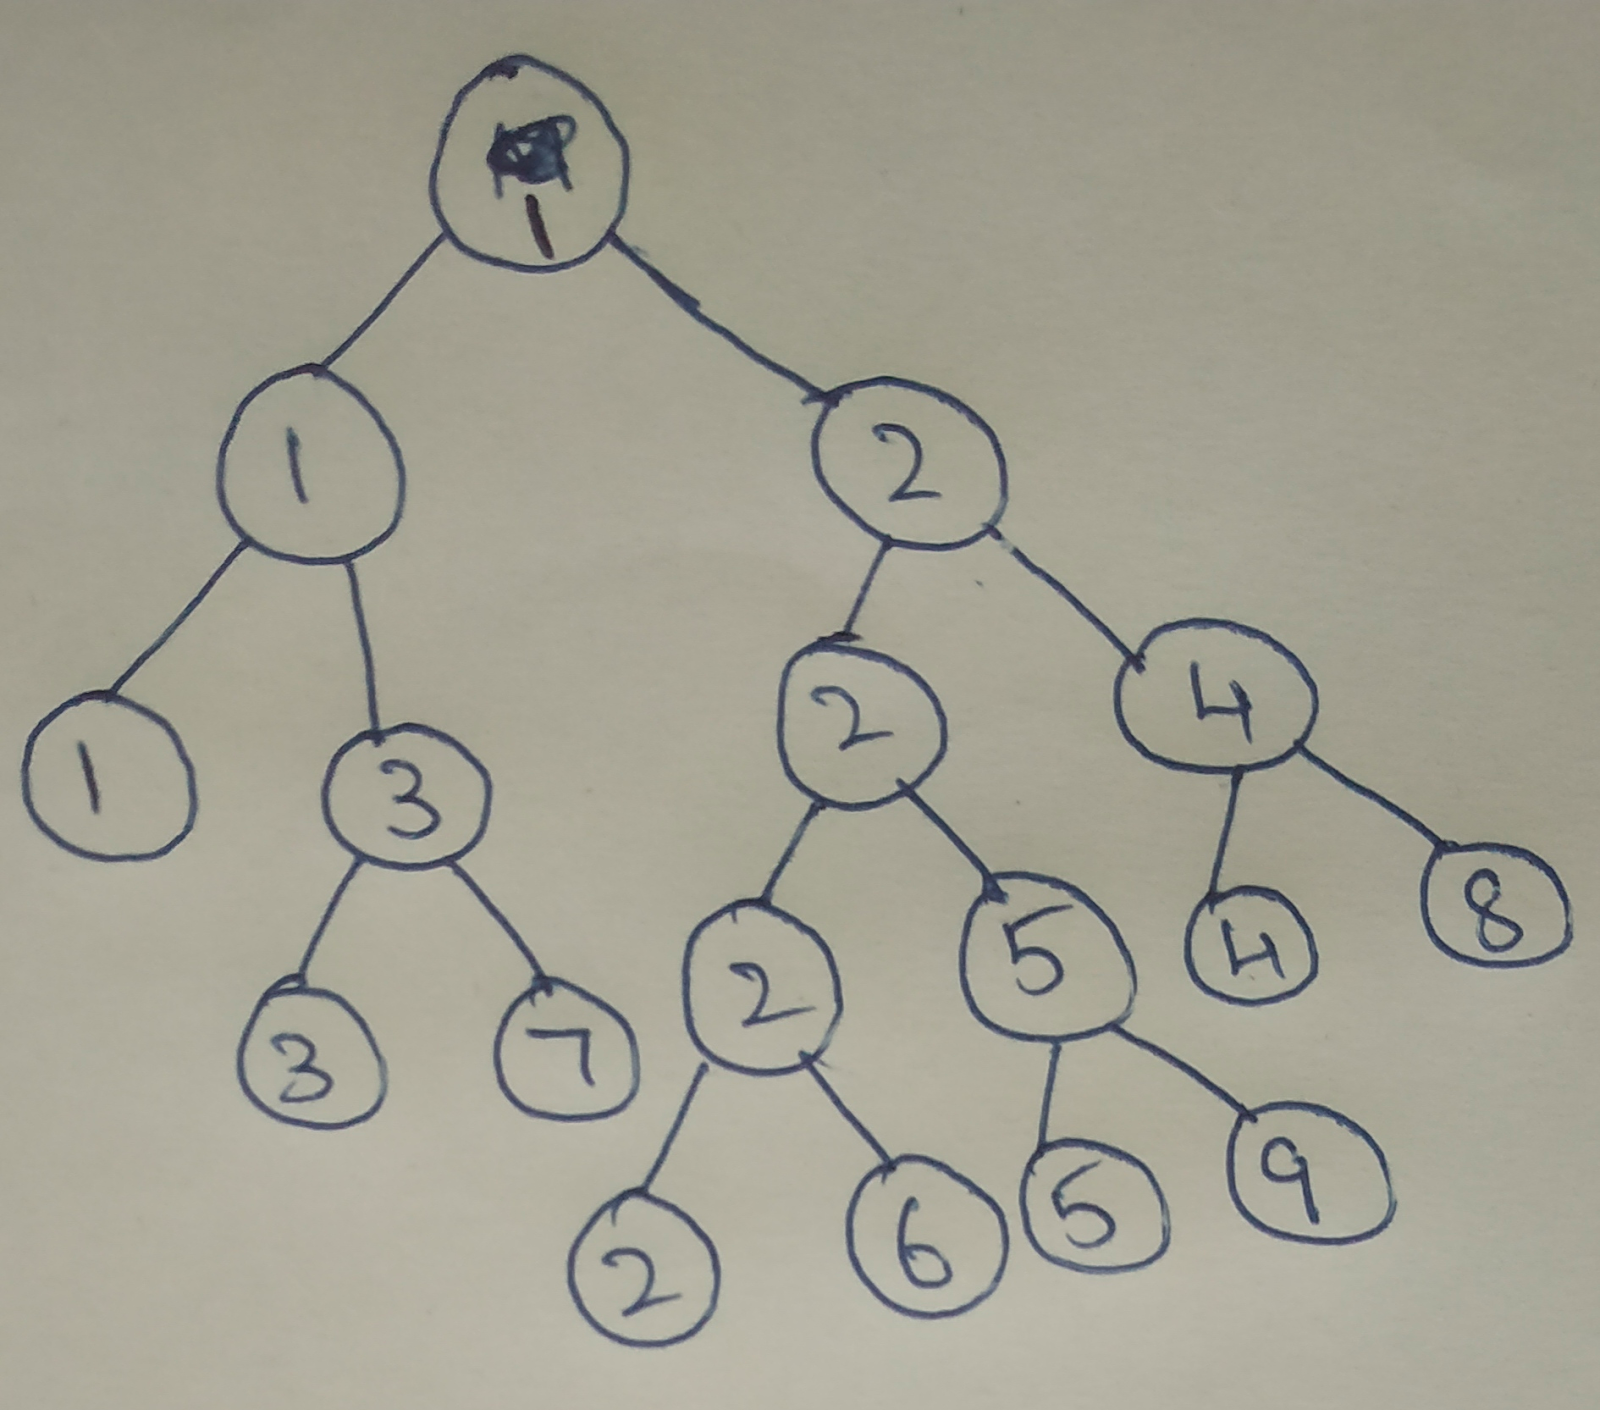 1
1 2
1 3 2 4
3 7 2 5 4 8
2 6 5 9